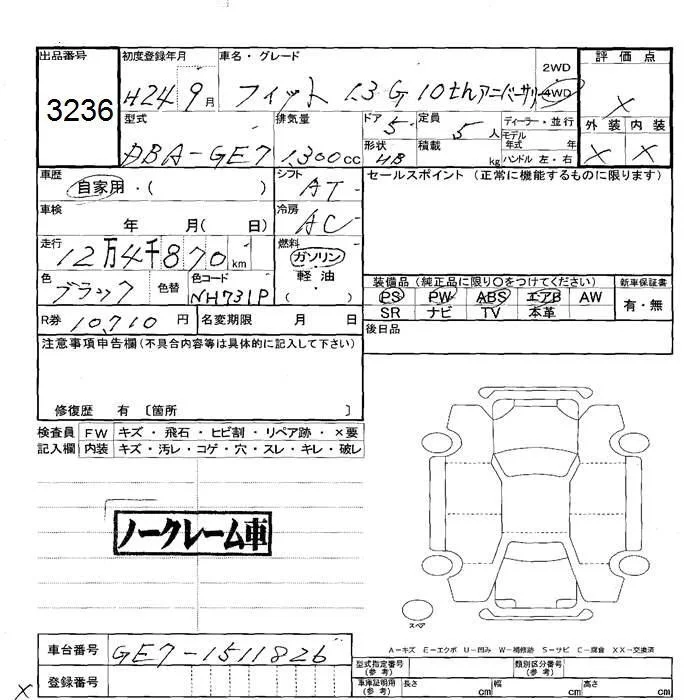 出品番号 初度登録年月 車名・グレード 評価点
3236 H24 9月 フィット 1.3 G 10thアニバーサリー 2WD 4WD ×
型式 排気量 ドア 定員 ディーラー・並行 外装 内装
DBA-GE7 1,300cc 5 5人 モデル年式 年 × ×
形状 HB 積載 kg ハンドル 左・右
車歴 シフト セールスポイント (正常に機能するものに限ります)
自家用・( ) AT
車検 冷房
年 月( 日) AC
走行 燃料
12万4千870km ガソリン
色 色替 色コード 軽油
ブラック NH731P ( )
装備品 (純正品に限り○をつけてください) 新車保証書
PS PW ABS エアB AW 有・無
SR ナビ TV 本革
R券 10,710円 名変期限 月 日 後日品
注意事項申告欄(不具合内容等は具体的に記入して下さい)
修復歴 有 〔箇所 〕
検査員 FW キズ・飛石・ヒビ割・リペア跡・×要
記入欄 内装 キズ・汚レ・コゲ・穴・スレ・キレ・破レ
ノークレーム車
スペア
A-キズ E-エクボ U-凹み W-補修跡 S-サビ C-腐食 XX-交換済
車台番号 GE7-1511826 型式指定番号(参考) 類別区分番号(参考)
× 登録番号 車庫証明用(参考) 長さ cm 幅 cm 高さ cm